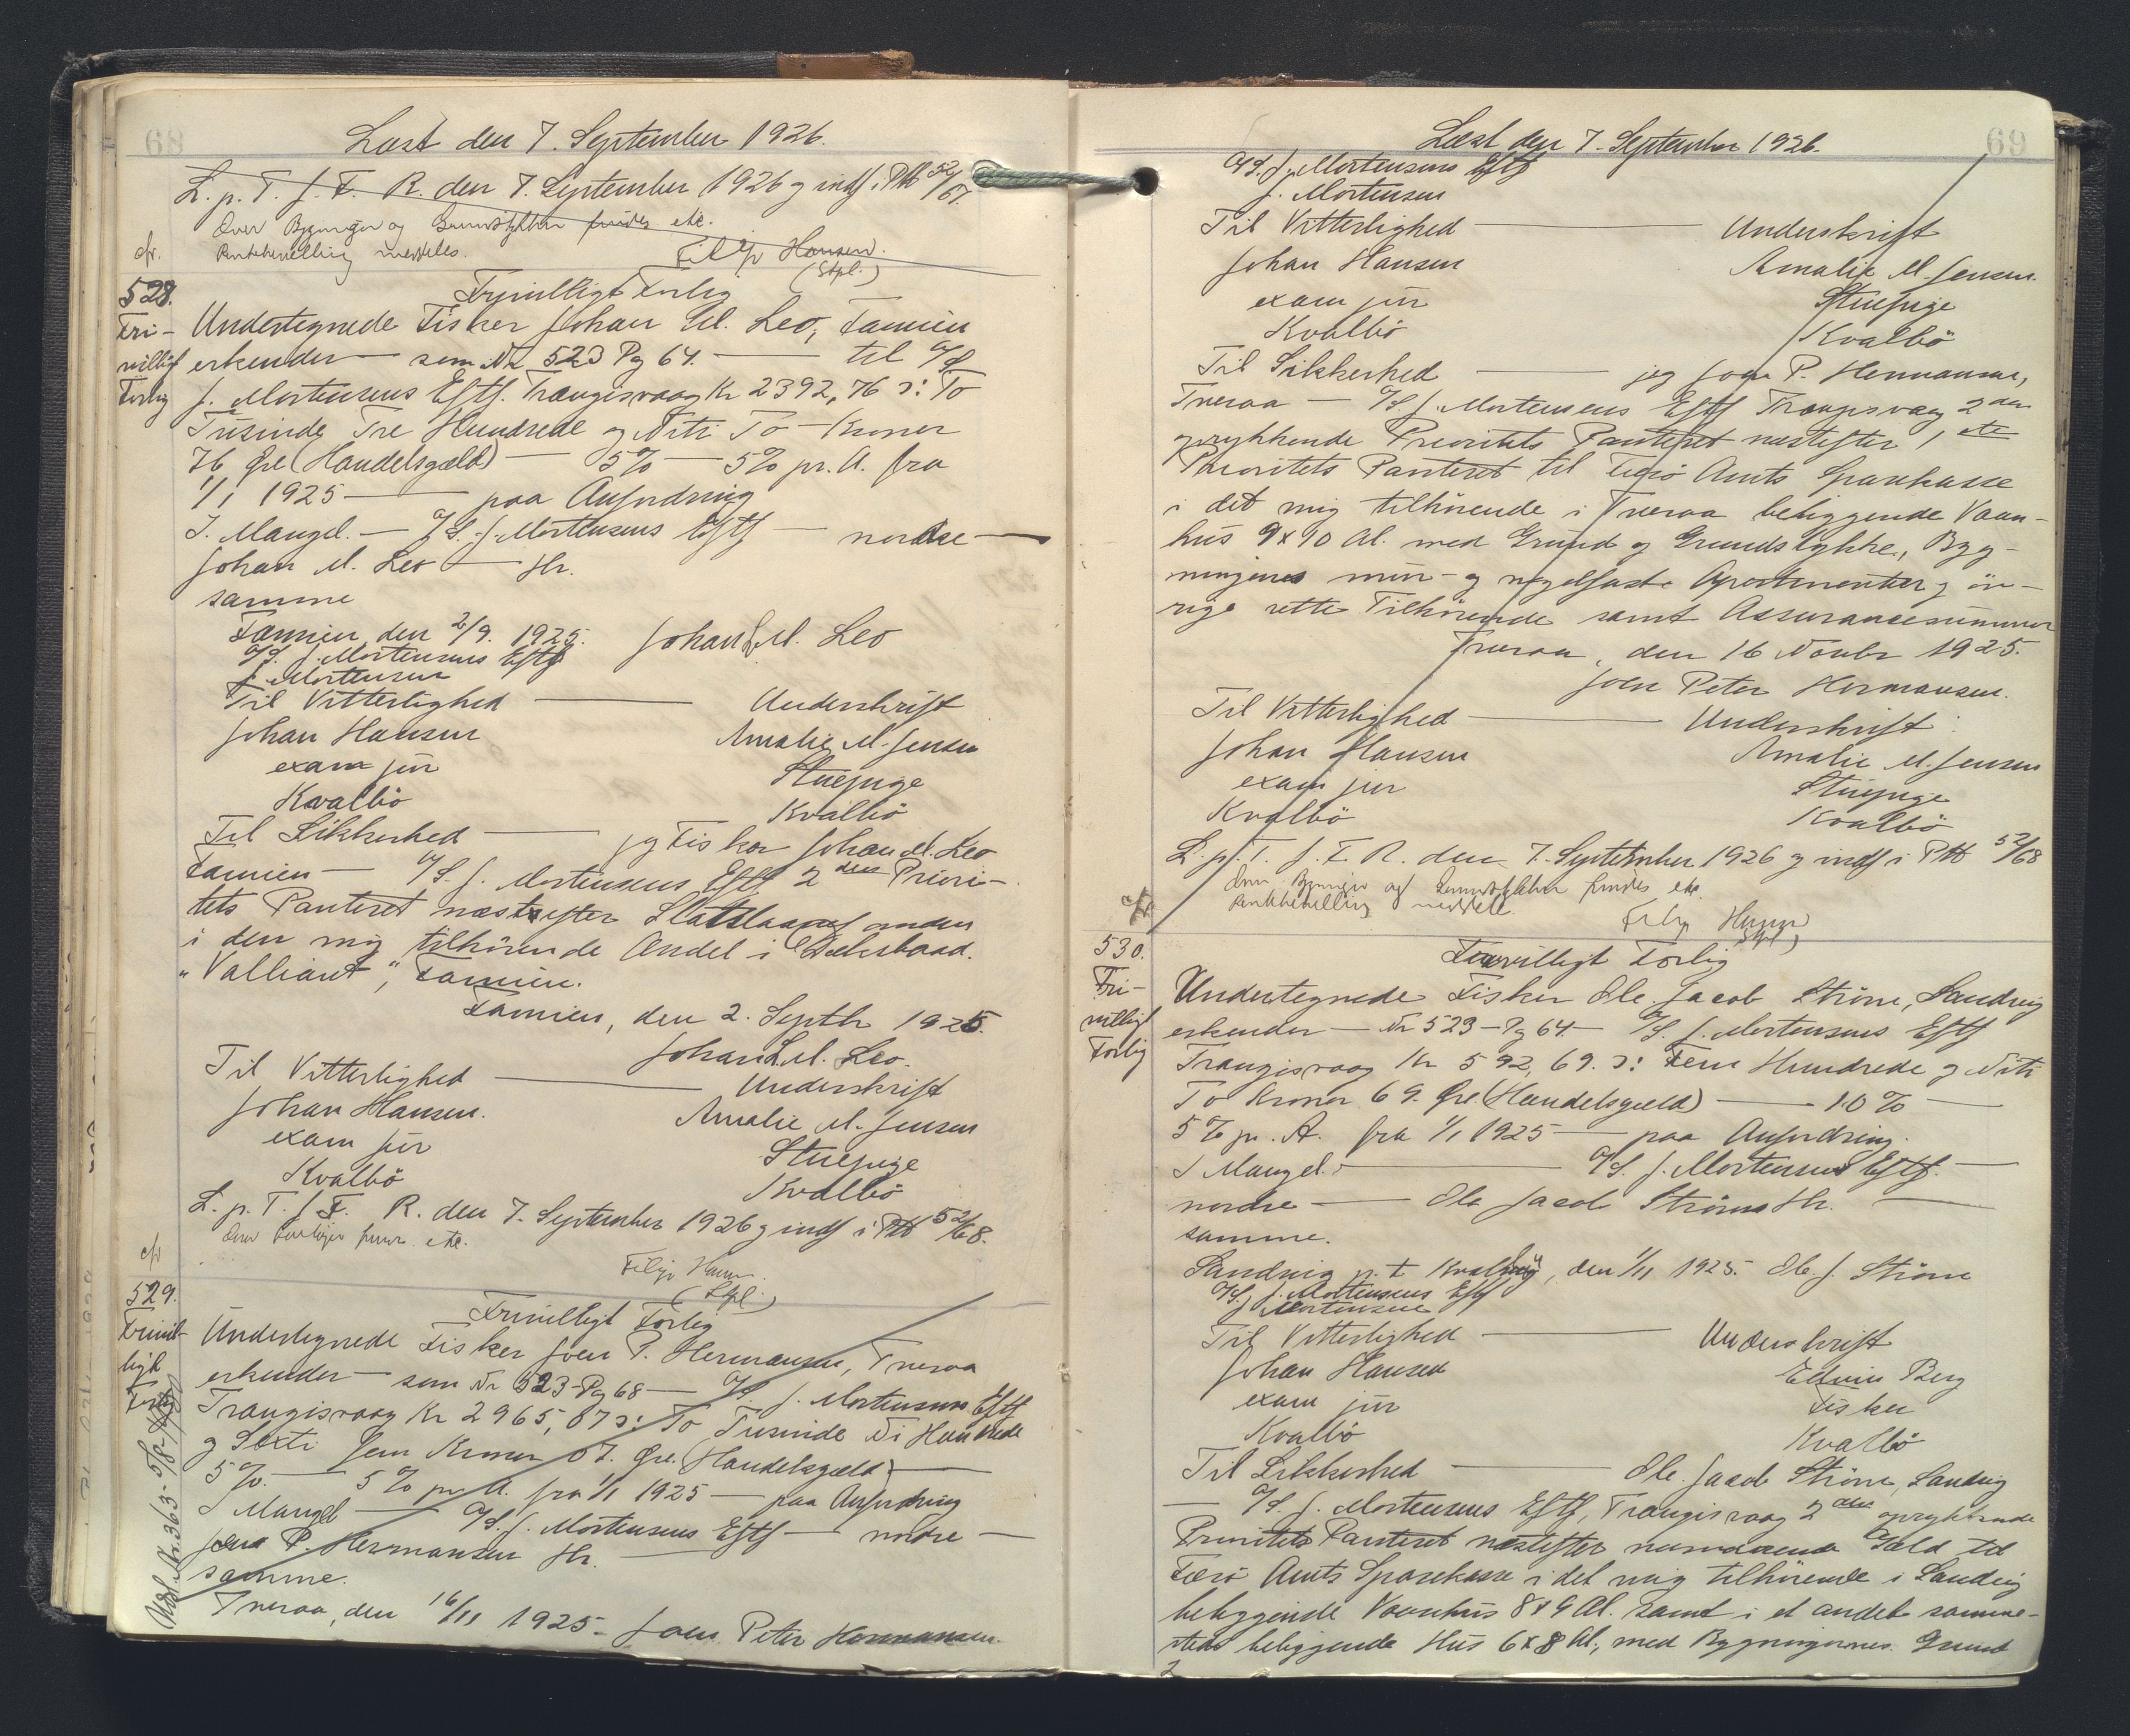 68
Læst den 7. September 1926.
L. p. T. f. F. R. den 7. September 1926 og indf i Ptb 52/67.
Over Bygninger og Grundstykker findes etc.
Panthavelling meddeles.
Filip Hansen.
(Stpl.)
cfr.
528.
Fri-
villigt
Forlig
Frivilligt Forlig
Undertegnede Fisker Johan M. Leo, Famien
erkender — som Nr 523 Pg 64. — til A/S
J. Mortensens Eftf. Trangisvaag Kr 2392,76 ɔ: To
Tusinde Tre Hundrede og Niti To Kroner
76 Øre (Handelsgæld) — 5% — 5% pr. A. fra
1/1 1925 — paa Anfordring
I. Mangel. — A/S. J. Mortensens Eftf — nordre —
Johan M. Leo — Hr.
samme
Famien, den 2/9. 1925. Johan M. Leo
A/S. J. Mortensens Eftf
J. Mortensen
Til Vitterlighed — Underskrift
Johan Hansen Amalie M. Jensen
exam jur Stuepige
Kvalbö Kvalbö
Til Sikkerhed — jeg Fisker Johan M. Leo
Famien — A/S. J. Mortensens Eftf 2den Priori-
tets Panteret næstefter Statslaanefonden
i den mig tilhörende Andel i Dæksbaad.
"Valliant", Famien.
Famien, den 2. Septbr 1925.
Johan M. Leo.
Til Vitterlighed — Underskrift
Johan Hansen. Amalie M. Jensen
exam jur Stuepige
Kvalbö Kvalbö
L. p. T. f F. R. den 7. September 1926 og indf i Ptb 52/68.
Filip Hansen.
(Stpl.)
cfr
529.
Frivil-
ligt
Forlig
Frivilligt Forlig
Undertegnede Fisker Joen P. Hermansen, Tveraa
erkender — som Nr 523 Pg 68 — A/S. J. Mortensens Eftf
Trangisvaag Kr 2965,07 ɔ: To Tusinde Ni Hundrede
og Sexti fem Kroner 07. Øre. (Handelsgæld) —
5%. — 5% pr. A. fra 1/1 1925 — paa Anfordring
I Mangel — A/S. J. Mortensens Eftf — nordre —
Joen P. Hermansen Hr. —
samme.
Tveraa, den 16/11 1925 - Joen Peter Hermansen.
69
Læst den 7. September 1926.
A/S. J. Mortensens Eftf
J. Mortensen
Til Vitterlighed — Underskrift
Johan Hansen Amalie M. Jensen.
exam jur Stuepige
Kvalbö Kvalbö
Til Sikkerhed — jeg Joen P. Hermansen,
Tveraa — A/S J. Mortensens Eftf Trangisvaag 2den
oprykkende Prioritets Panteret næstefter 1 ste
Prioritets Panteret til Færö Amts Sparekasse
i det mig tilhörende i Tveraa beliggende Vaan-
hus 9x10 Al. med Grund og Grundstykke, Byg-
ningens mur- og nagelfaste Apertinentier, öv-
rige rette Tilhörende samt Assurancesummer
Tveraa, den 16 Novbr 1925.
Joen Peter Hermansen.
Til Vitterlighed — Underskrift
Johan Hansen Amalie M. Jensen
exam jur Stuepige
Kvalbö Kvalbö
L. p. T. f. F. R. den 7. September 1926 og indf i Ptb 52/68
Over Bygninger og Grundstykker findes etc.
Panthavelling meddeles.
Filip Hansen
(Stpl.)
cfr.
530.
Fri-
villigt
Forlig
Frivilligt Forlig
Undertegnede Fisker Ole Jacob Ström, Sandvig
erkender — Nr 523 - Pg 64 — A/S. J. Mortensens Eftf
Trangisvaag Kr 592,69. ɔ: Fem Hundrede og Niti
To Kroner 69. Øre. (Handelsgæld) — 10% —
5% pr. A. fra 1/1 1925 — paa Anfordring.
I Mangel. — A/S. J. Mortensens Eftf. —
nordre — Ole Jacob Ströms Hr. —
samme.
Sandvig p. t Kvalbö, den 1/11 1925. Ole. J. Ström
A/S. J. Mortensens Eftf
J Mortensen
Til Vitterlighed — Underskrift
Johan Hansen Edvin Berg
exam jur Fisker
Kvalbö Kvalbö
Til Sikkerhed — Ole Jacob Ström, Sandvig
— A/S J. Mortensens Eftf, Trangisvaag 2den oprykkende
Prioritets Panteret næstefter nuværende Gæld til
Færö Amts Sparekasse i det mig tilhörende i Sandvig
beliggende Vaanehus 8x9 Al. samt i et andet samme-
steds beliggende Hus 6x8 Al., med Bygningernes Grund